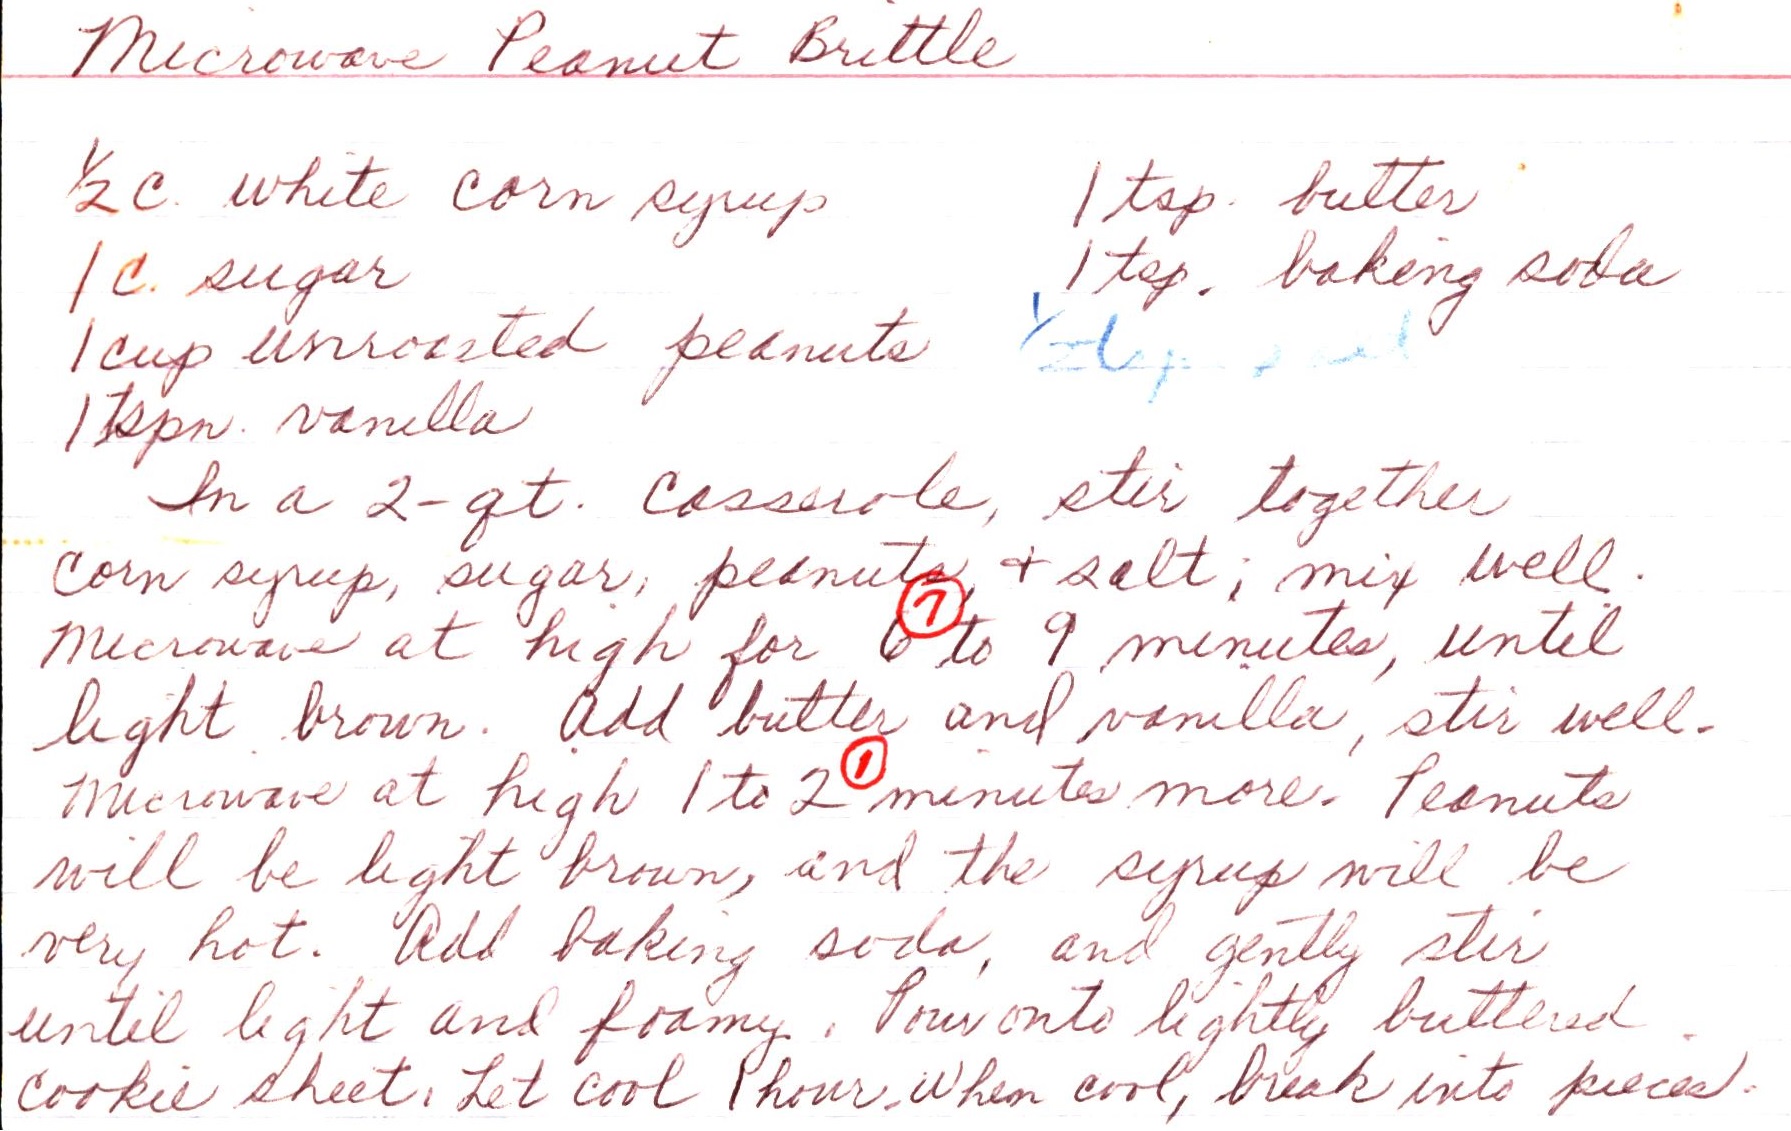 Microwave Peanut Brittle
½ c. white corn syrup 1 tsp. butter
1 c. sugar 1 tsp. baking soda
1 cup unroasted peanuts ½ tsp. salt
1 tspn. vanilla
In a 2-qt. casserole, stir together
corn syrup, sugar, peanuts, + salt; mix well.
Microwave at high for 6 ⑦ to 9 minutes, until
light brown. Add butter and vanilla, stir well.
Microwave at high 1 to 2 ① minutes more. Peanuts
will be light brown, and the syrup will be
very hot. Add baking soda, and gently stir
until light and foamy. Pour onto lightly buttered
cookie sheet. Let cool 1 hour. When cool, break into pieces.